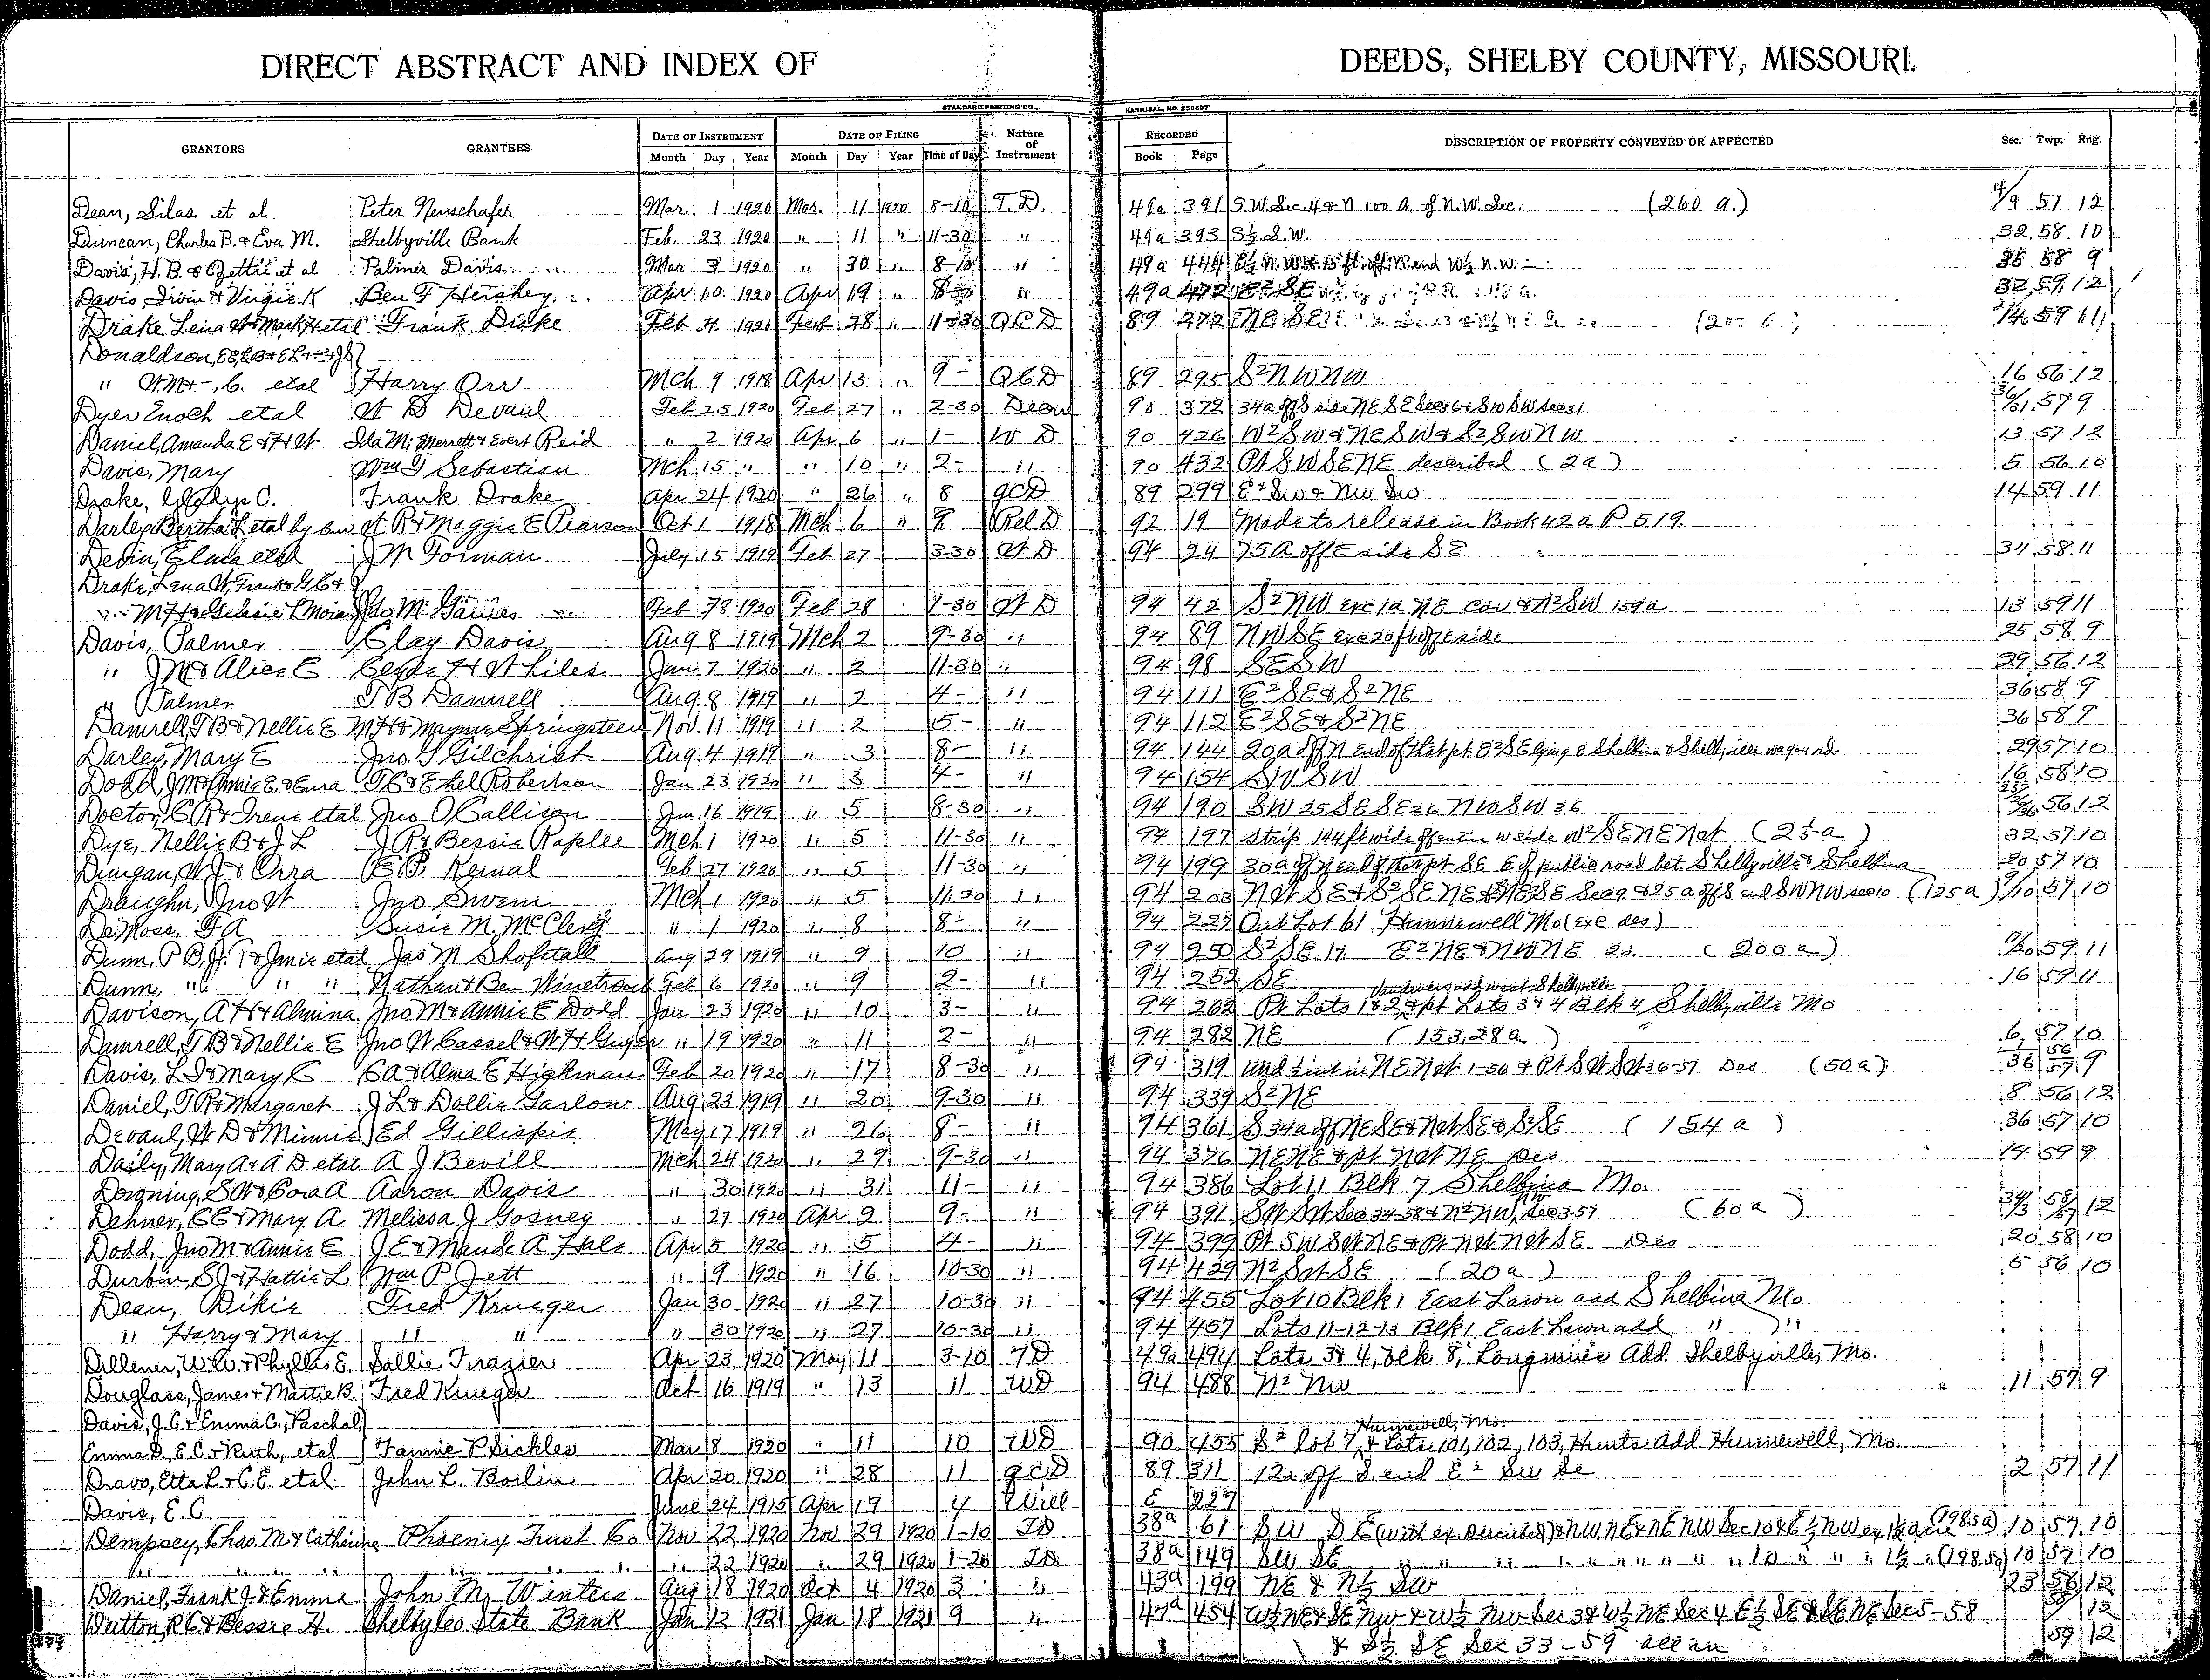 DIRECT ABSTRACT AND INDEX OF DEEDS, SHELBY COUNTY, MISSOURI.
STANDARD PRINTING CO., HANNIBAL, MO 256697
GRANTORS GRANTEES DATE OF INSTRUMENT DATE OF FILING Nature of Instrument RECORDED DESCRIPTION OF PROPERTY CONVEYED OR AFFECTED Sec. Twp. Rng.
Month Day Year Month Day Year Time of Day Book Page
Dean, Silas et al Peter Neuschafer Mar. 1 1920 Mar. 11 1920 8-10 T.D. 49a 391 S.W. Sec. 4 & N 100 A. of N.W. Sec. (260 a.) 4/9 57 12
Duncan, Charles B. & Eva M. Shelbyville Bank Feb. 23 1920 " 11 " 11-30 " 49a 393 S½ S.W. 32 58 10
Davis, H.B. & Zettie et al Palmer Davis Mar 3 1920 " 30 " 8-10 " 49a 444 35 58 9
Davis Irvin & Virgie K Ben F Hershey Apr 10 1920 Apr 19 " 8-30 " 49a 472 E2 SE 32 59 12
Drake Lena W & Mark H etal Frank Drake Feb 4 1920 Feb 28 " 11-30 QCD 89 272 NE SE 14 59 11
Donaldson,
" Wm + -, C. etal Harry Orr Mch 9 1918 Apr 13 " 9- QCD 89 295 S2 NW NW 16 56 12
Dyer Enoch etal W D Devaul Feb 25 1920 Feb 27 " 2-30 90 372 34a off S side NE SE Sec 36 & SW SW Sec 31 36/31 57 9
Daniel, Amanda E & H W Ida M. Merrett & Evert Reid " 2 1920 Apr 6 " 1- W D 90 426 W2 SW & NE SW & S2 SW NW 13 57 12
Davis, Mary Wm T Sebastian Mch 15 " " 10 " 2- " 90 432 Pt SW SE NE described (2a) 5 56 10
Drake, Gladys C. Frank Drake Apr 24 1920 " 26 " 8 QCD 89 299 E2 SW & NW SW 14 59 11
Darley, Bertha L etal by W R & Maggie E Pearson Oct 1 1918 Mch 6 " 9 Rel D 92 19 Made to release in Book 42a P 519.
Devin, Elma etal J M Forman July 15 1919 Feb 27 3-30 W D 94 24 75A off E side SE 34 58 11
Drake, Lena W, Frank & G C &
M H & Gussie L Jno M. Gaines Feb 1920 Feb 28 1-30 W D 94 42 S2 NW exc 1a NE cor & N2 SW 159a 13 59 11
Davis, Palmer Clay Davis Aug 8 1919 Mch 2 9-30 " 94 89 NW SE exc 20 ft off E side 25 58 9
" J M & Alice E Clyde H Whiles Jan 7 1920 " 2 11-30 " 94 98 SE SW 29 56 12
" Palmer T B Damrell Aug 8 1919 " 2 4- " 94 111 E2 SE & S2 NE 36 58 9
Damrell, T B & Nellie E M H & Mayme Springsteen Nov 11 1919 " 2 5- " 94 112 E2 SE & S2 NE 36 58 9
Darley, Mary E Jno T Gilchrist Aug 4 1919 " 3 8- " 94 144 20a off N end of that pt. E2 SE lying E Shelbina & Shelbyville wagon rd. 29 57 10
Dodd, J M & Annie E. & Eura T C & Ethel Robertson Jan 23 1920 " 3 4- " 94 154 SW SW 16 58 10
Doctor, C R & Irene etal Jno O Callison Jun 16 1919 " 5 8-30 " 94 190 SW 25 SE SE 26 NW SW 36 25/26/36 56 12
Dye, Nellie B & J L J R & Bessie Raplee Mch 1 1920 " 5 11-30 " 94 197 Strip 144 ft wide off entire W side W2 SE NE NW (2½ a) 32 57 10
Dungan, W J & Orra E P Kernal Feb 27 1920 " 5 11-30 " 94 199 30a off N end of that pt SE E of public road bet. Shelbyville & Shelbina 20 57 10
Draughn, Jno W Jno Swem Mch 1 1920 " 5 11-30 " 94 203 NW SE & S2 SE NE & NE SE Sec 9 & 25a off S end SW NW Sec 10 (125a) 9/10 57 10
DeMoss, F A Susie M. McClerg " 1 1920 " 8 8- " 94 227 Out Lot 61 Hunnewell Mo (exc des)
Dunn, P B, Jr. & Janie etal Jas M Shofstall Aug 29 1919 " 9 10 " 94 250 S2 SE 17 E2 NE & NW NE 20. (200a) 17/20 59 11
Dunn, " " " Nathan & Ben Winetroub Feb 6 1920 " 9 2- " 94 252 SE 16 59 11
Davison, A H & Almina Jno M & Annie E Dodd Jan 23 1920 " 10 3- " 94 262 Pt Lots 1 & 2 & pt Lots 3 & 4 Blk 4 Vandivers add west Shelbyville Shelbyville Mo
Damrell, T B & Nellie E Jno W Cassel & W H Guyer " 19 1920 " 11 2- " 94 282 NE (153.28a) 6 57 10
Davis, L I & Mary C C A & Alma E Hickman Feb 20 1920 " 17 8-30 " 94 319 und ½ int in NE NW 1-56 & Pt SW SW 36-57 Des (50a) 1/36 56/57 9
Daniel, T R & Margaret J L & Dollie Garlow Aug 23 1919 " 20 9-30 " 94 339 S2 NE 8 56 12
Devaul, W D & Minnie Ed Gillispie May 17 1919 " 26 8- " 94 361 S 34a of NE SE & NW SE & S2 SE (154a) 36 57 10
Daily, Mary A & A D etal A J Bevill Mch 24 1920 " 29 9-30 " 94 376 NE NE & pt NW NE Des 14 59 9
Downing, S W & Cora A Aaron Davis " 30 1920 " 31 11- " 94 386 Lot 11 Blk 7 Shelbina Mo.
Dehner, C E & Mary A Melissa J Gosney " 27 1920 Apr 2 9- " 94 391 SW SW Sec 34-58 & N2 NW NW Sec 3-57 (60a) 34/3 58/57 12
Dodd, Jno M & Annie E J E & Maude A Hale Apr 5 1920 " 5 4- " 94 399 Pt SW SW NE & Pt NW NW SE Des 20 58 10
Durbin, S J & Hattie L Wm P Jett " 9 1920 " 16 10-30 " 94 429 N2 SW SE (20a) 5 56 10
Dean, Dikie Fred Krueger Jan 30 1920 " 27 10-30 " 94 455 Lot 10 Blk 1 East Lawn add Shelbina Mo
" Harry & Mary " " " 30 1920 " 27 10-30 " 94 457 Lots 11-12-13 Blk 1 East Lawn add " "
Dillener, W.W. & Phyllis E. Sallie Frazier Apr 23 1920 May 11 3-10 TD 49a 494 Lots 3 & 4, blk 8, Longmires Add. Shelbyville, Mo.
Douglass, James & Mattie B. Fred Krueger Oct 16 1919 " 13 11 WD 94 488 N2 NW 11 57 9
Davis, J.C. & Emma C., Paschal,
Emma D., E.C. & Ruth, etal Fannie P Sickles Mar 8 1920 " 11 10 WD 90 455 S2 lot 7, Hunnewell, Mo. & Lots 101, 102, 103, Hunts Add. Hunnewell, Mo.
Dravo, Etta L. & C.E. etal John L. Boilin Apr 20 1920 " 28 11 QCD 89 311 12a off S. end E2 SW Se 2 57 11
Davis, E.C. June 24 1915 Apr 19 4 Will E 227
Dempsey, Chas. M & Catherine Phoenix Trust Co Nov 22 1920 Nov 29 1920 1-10 TD 38a 61 SW SE (with ex. Described) & NW NE & NE NW Sec 10 & E½ NW ex (198.5a) 10 57 10
" " " " 22 1920 " 29 1920 1-20 TD 38a 149 SW SE " " " " " " " (198.5a) 10 57 10
Daniel, Frank J. & Emma John M. Winters Aug 18 1920 Oct 4 1920 3 " 43a 199 NE & N½ SW 23 56 12
Dutton, R C & Bessie H. Shelby Co State Bank Jan 12 1921 Jan 18 1921 9 " 47a 454 W½ NE & SE NW & W½ NW Sec 3 & W½ NE Sec 4 E½ SE & SE NE Sec 5-58 58 12
& S½ SE Sec 33-59 all in 59 12